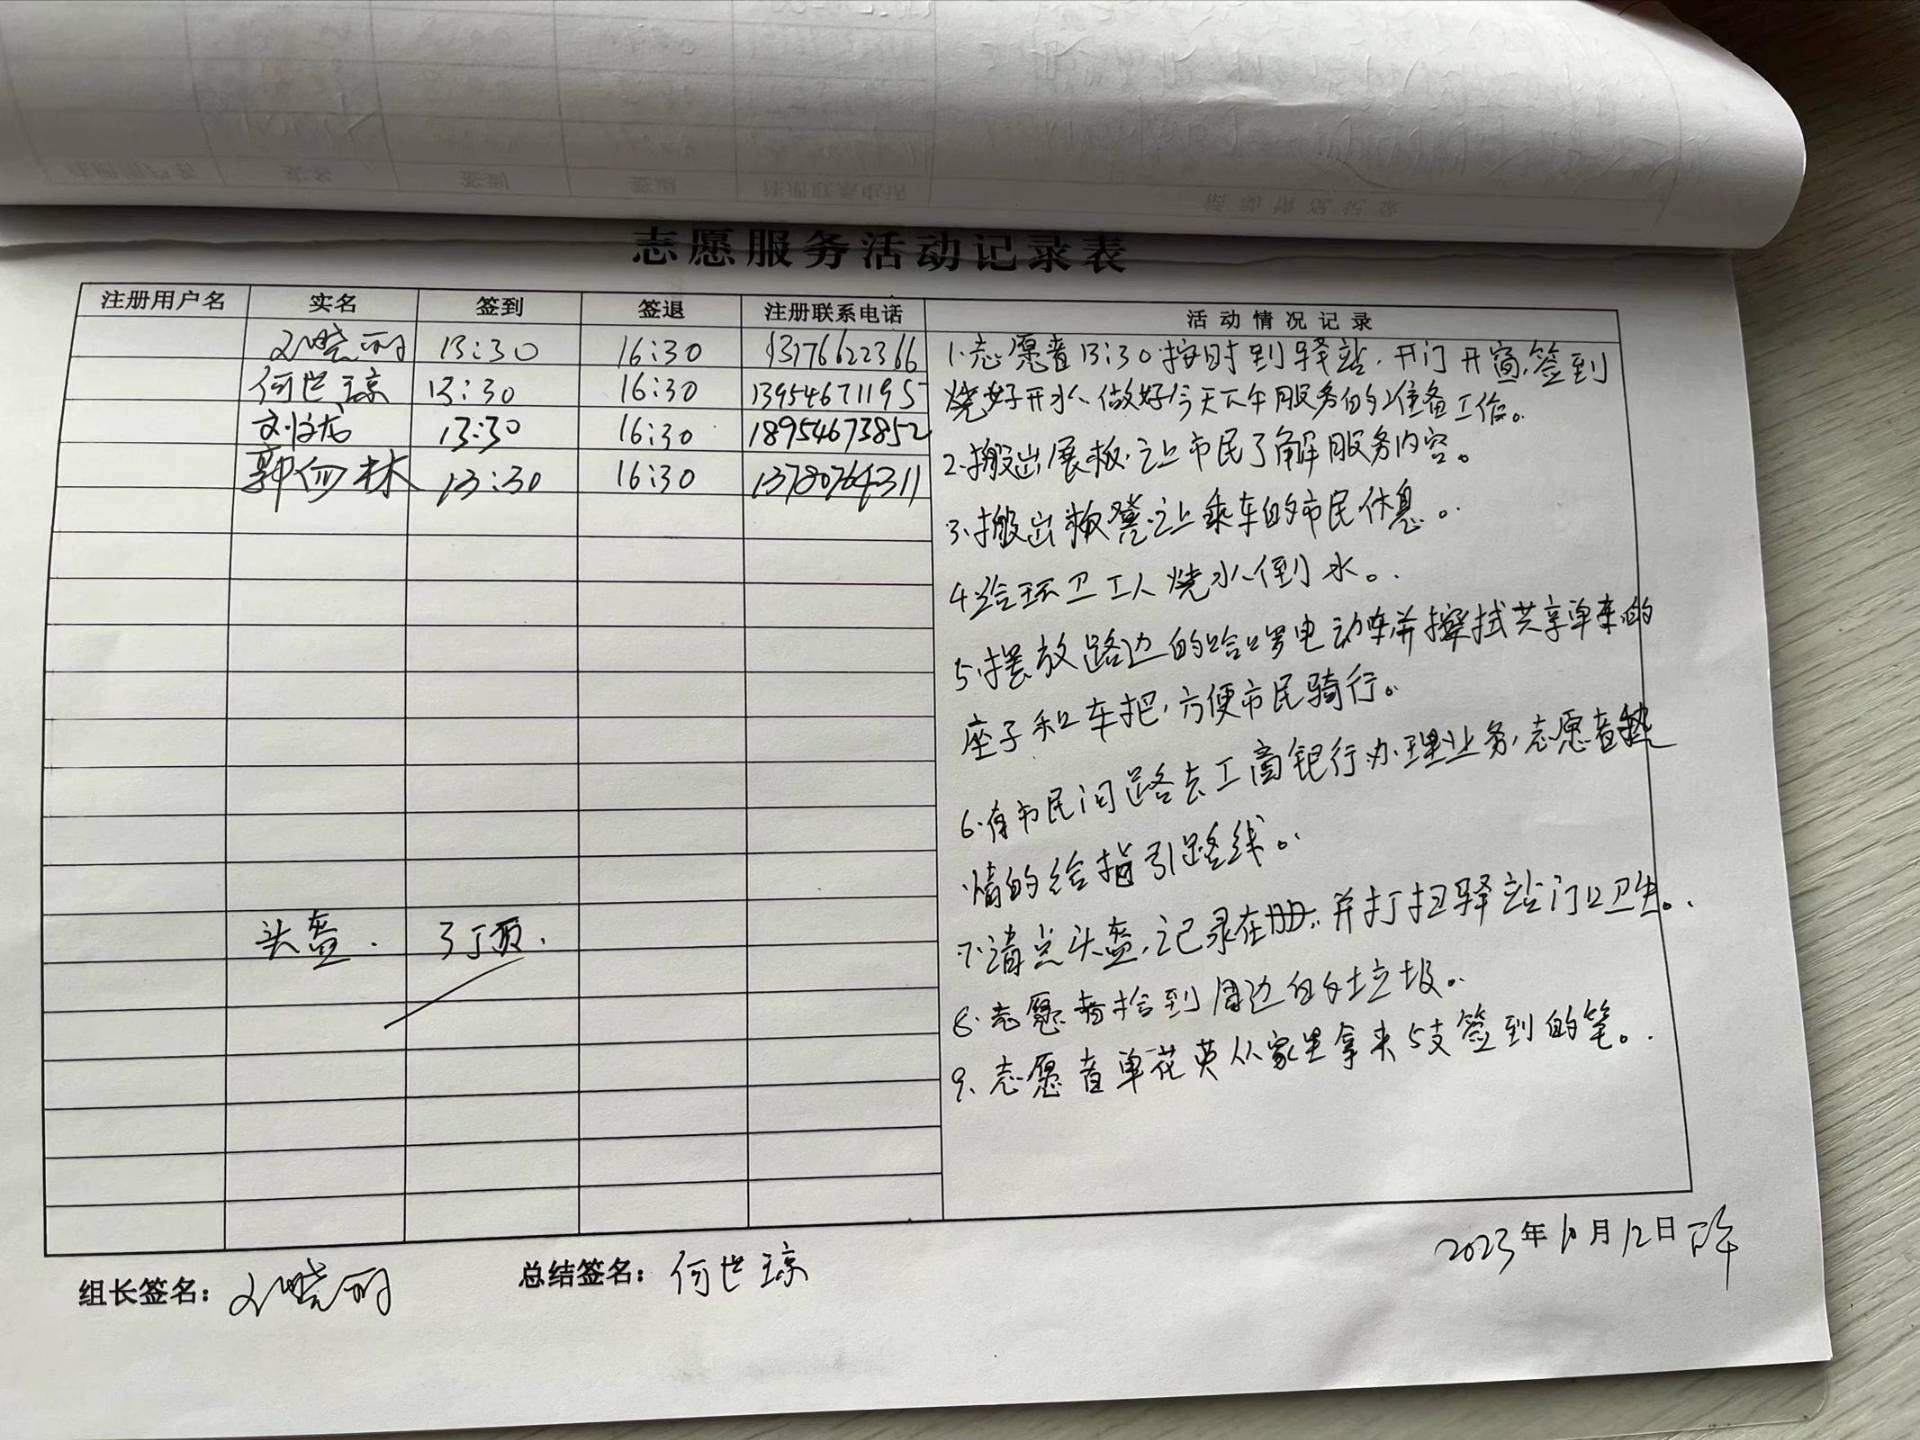 志愿服务活动记录表
注册用户名 实名 签到 签退 注册联系电话 活动情况记录
刘晓丽 13:30 16:30 13176622366
何世琼 13:30 16:30 13954671195
13:30 16:30 18954673852
郭 林 13:30 16:30 13780764311
头盔. 3顶.
1.志愿者13:30按时到驿站,开门开窗,签到
烧好开水、做好今天下午服务的准备工作。
2.搬出展板,让市民了解服务内容。
3.搬出板凳,让乘车的市民休息。
4.给环卫工人烧水倒水。
5.摆放路边的哈啰电动车并擦拭共享单车的
座子和车把,方便市民骑行。
6.有市民问路去工商银行办理业务,志愿者热
情的给指引路线。
7.清点头盔,记录在册,并打扫驿站门口卫生。
8.志愿者捡到周边的垃圾。
9.志愿者单花英从家里拿来5支签到的笔。
组长签名: 刘晓丽 总结签名: 何世琼 2023年10月12日下午